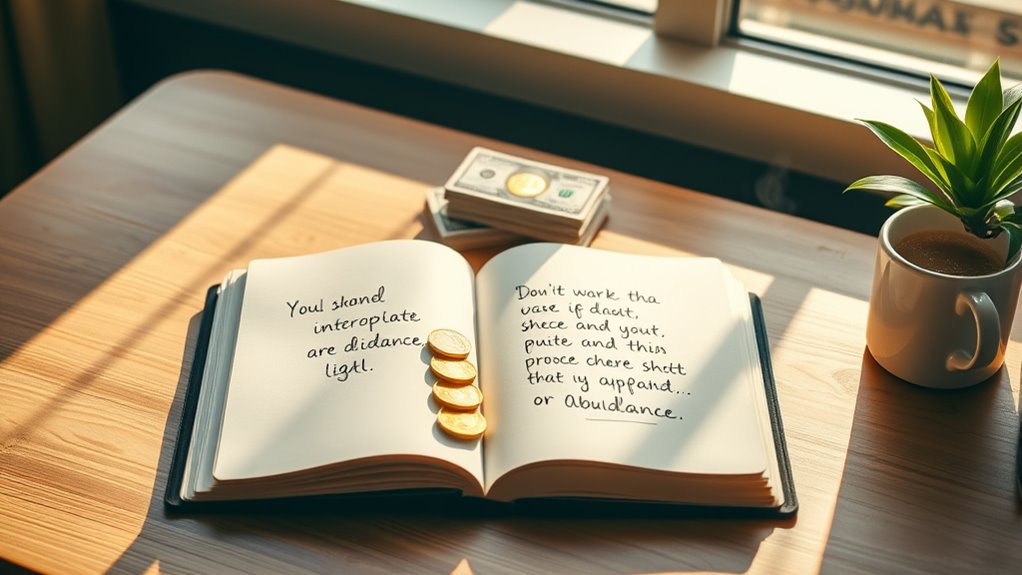 Youl skand
interoplate
are didance,
ligtl.
Don't wark tha
vase if daat,
shece and yout,
puite and this
prooce chere shctt
that iy appand...
or Abuldance.